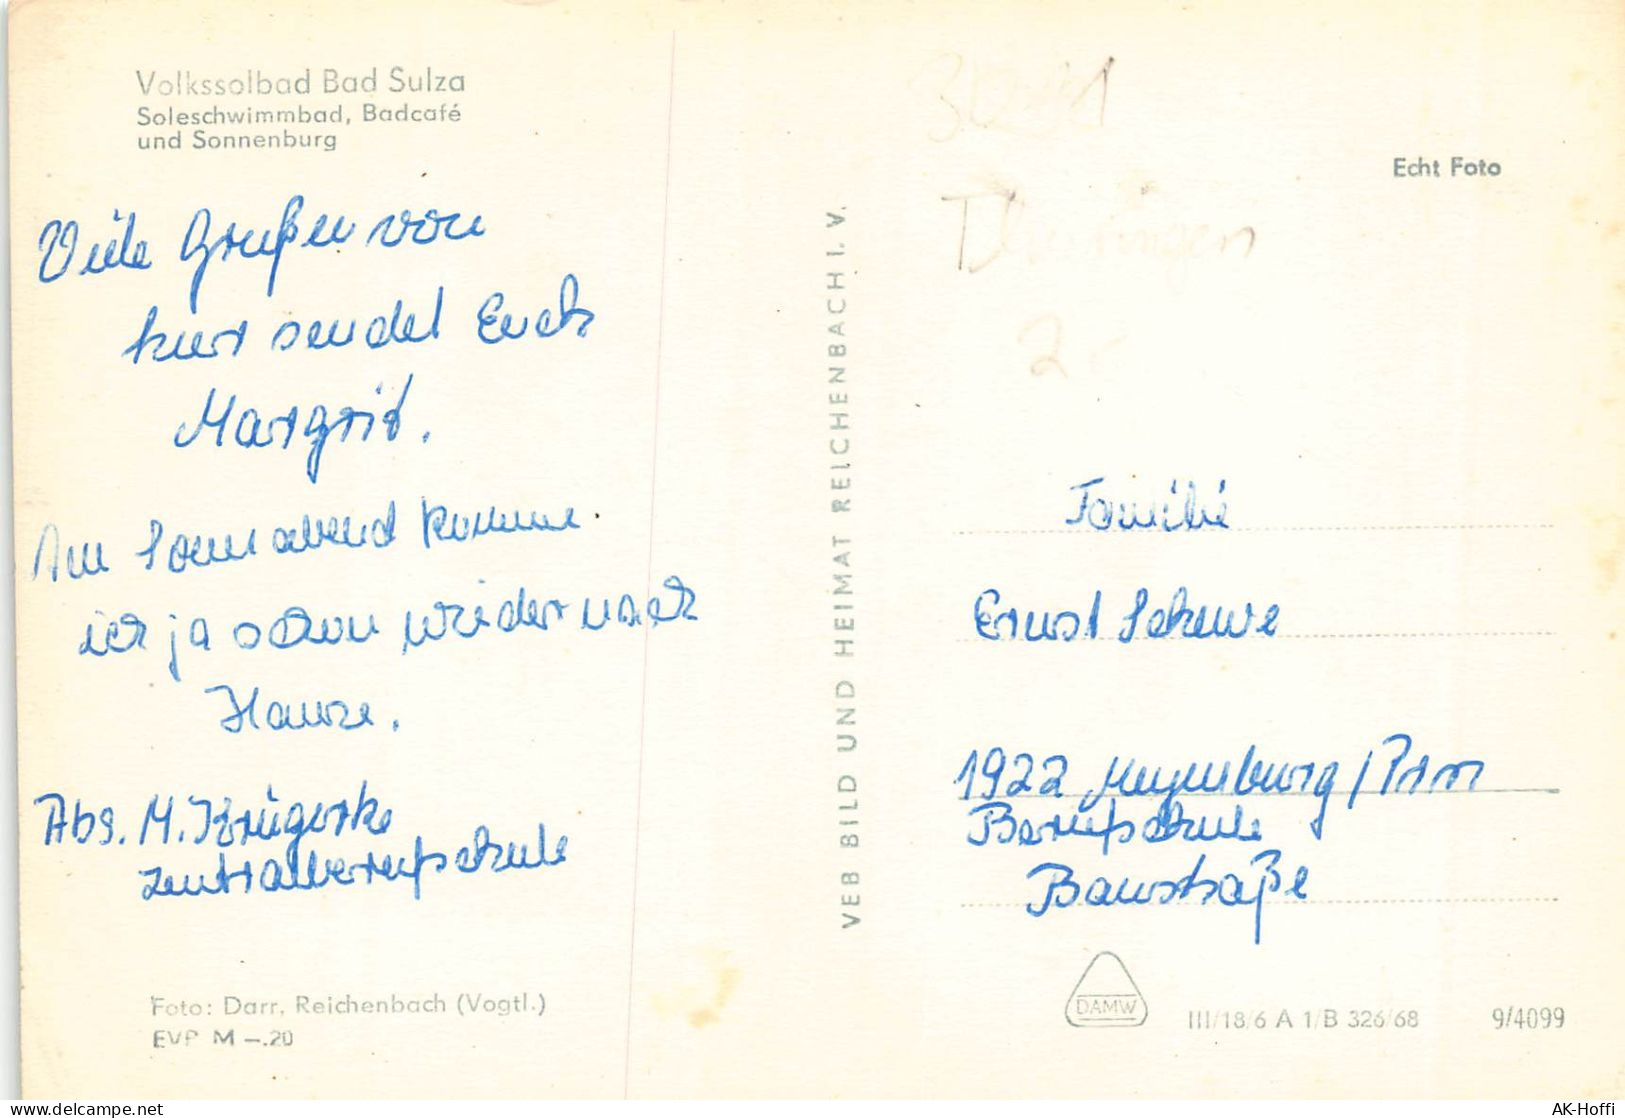 Volkssolbad Bad Sulza
Soleschwimmbad, Badcafé
und Sonnenburg
Viele Grüßen von
hier sendet Euch
Margrit.
Am Sonnabend komme
ich ja schon wieder nach
Hause.
Abs. M. Krügerke
Zentralberufschule
Foto: Darr, Reichenbach (Vogtl.)
EVP M –.20
VEB BILD UND HEIMAT REICHENBACH I. V.
Thüringen
2,-
Echt Foto
Familie
Ernst Schewe
1922 Meyenburg/Prm
Berufschule
Baustraße
DAMW
III/18/6 A 1/B 326/68
9/4099
AK-Hoffi
delcampe.net